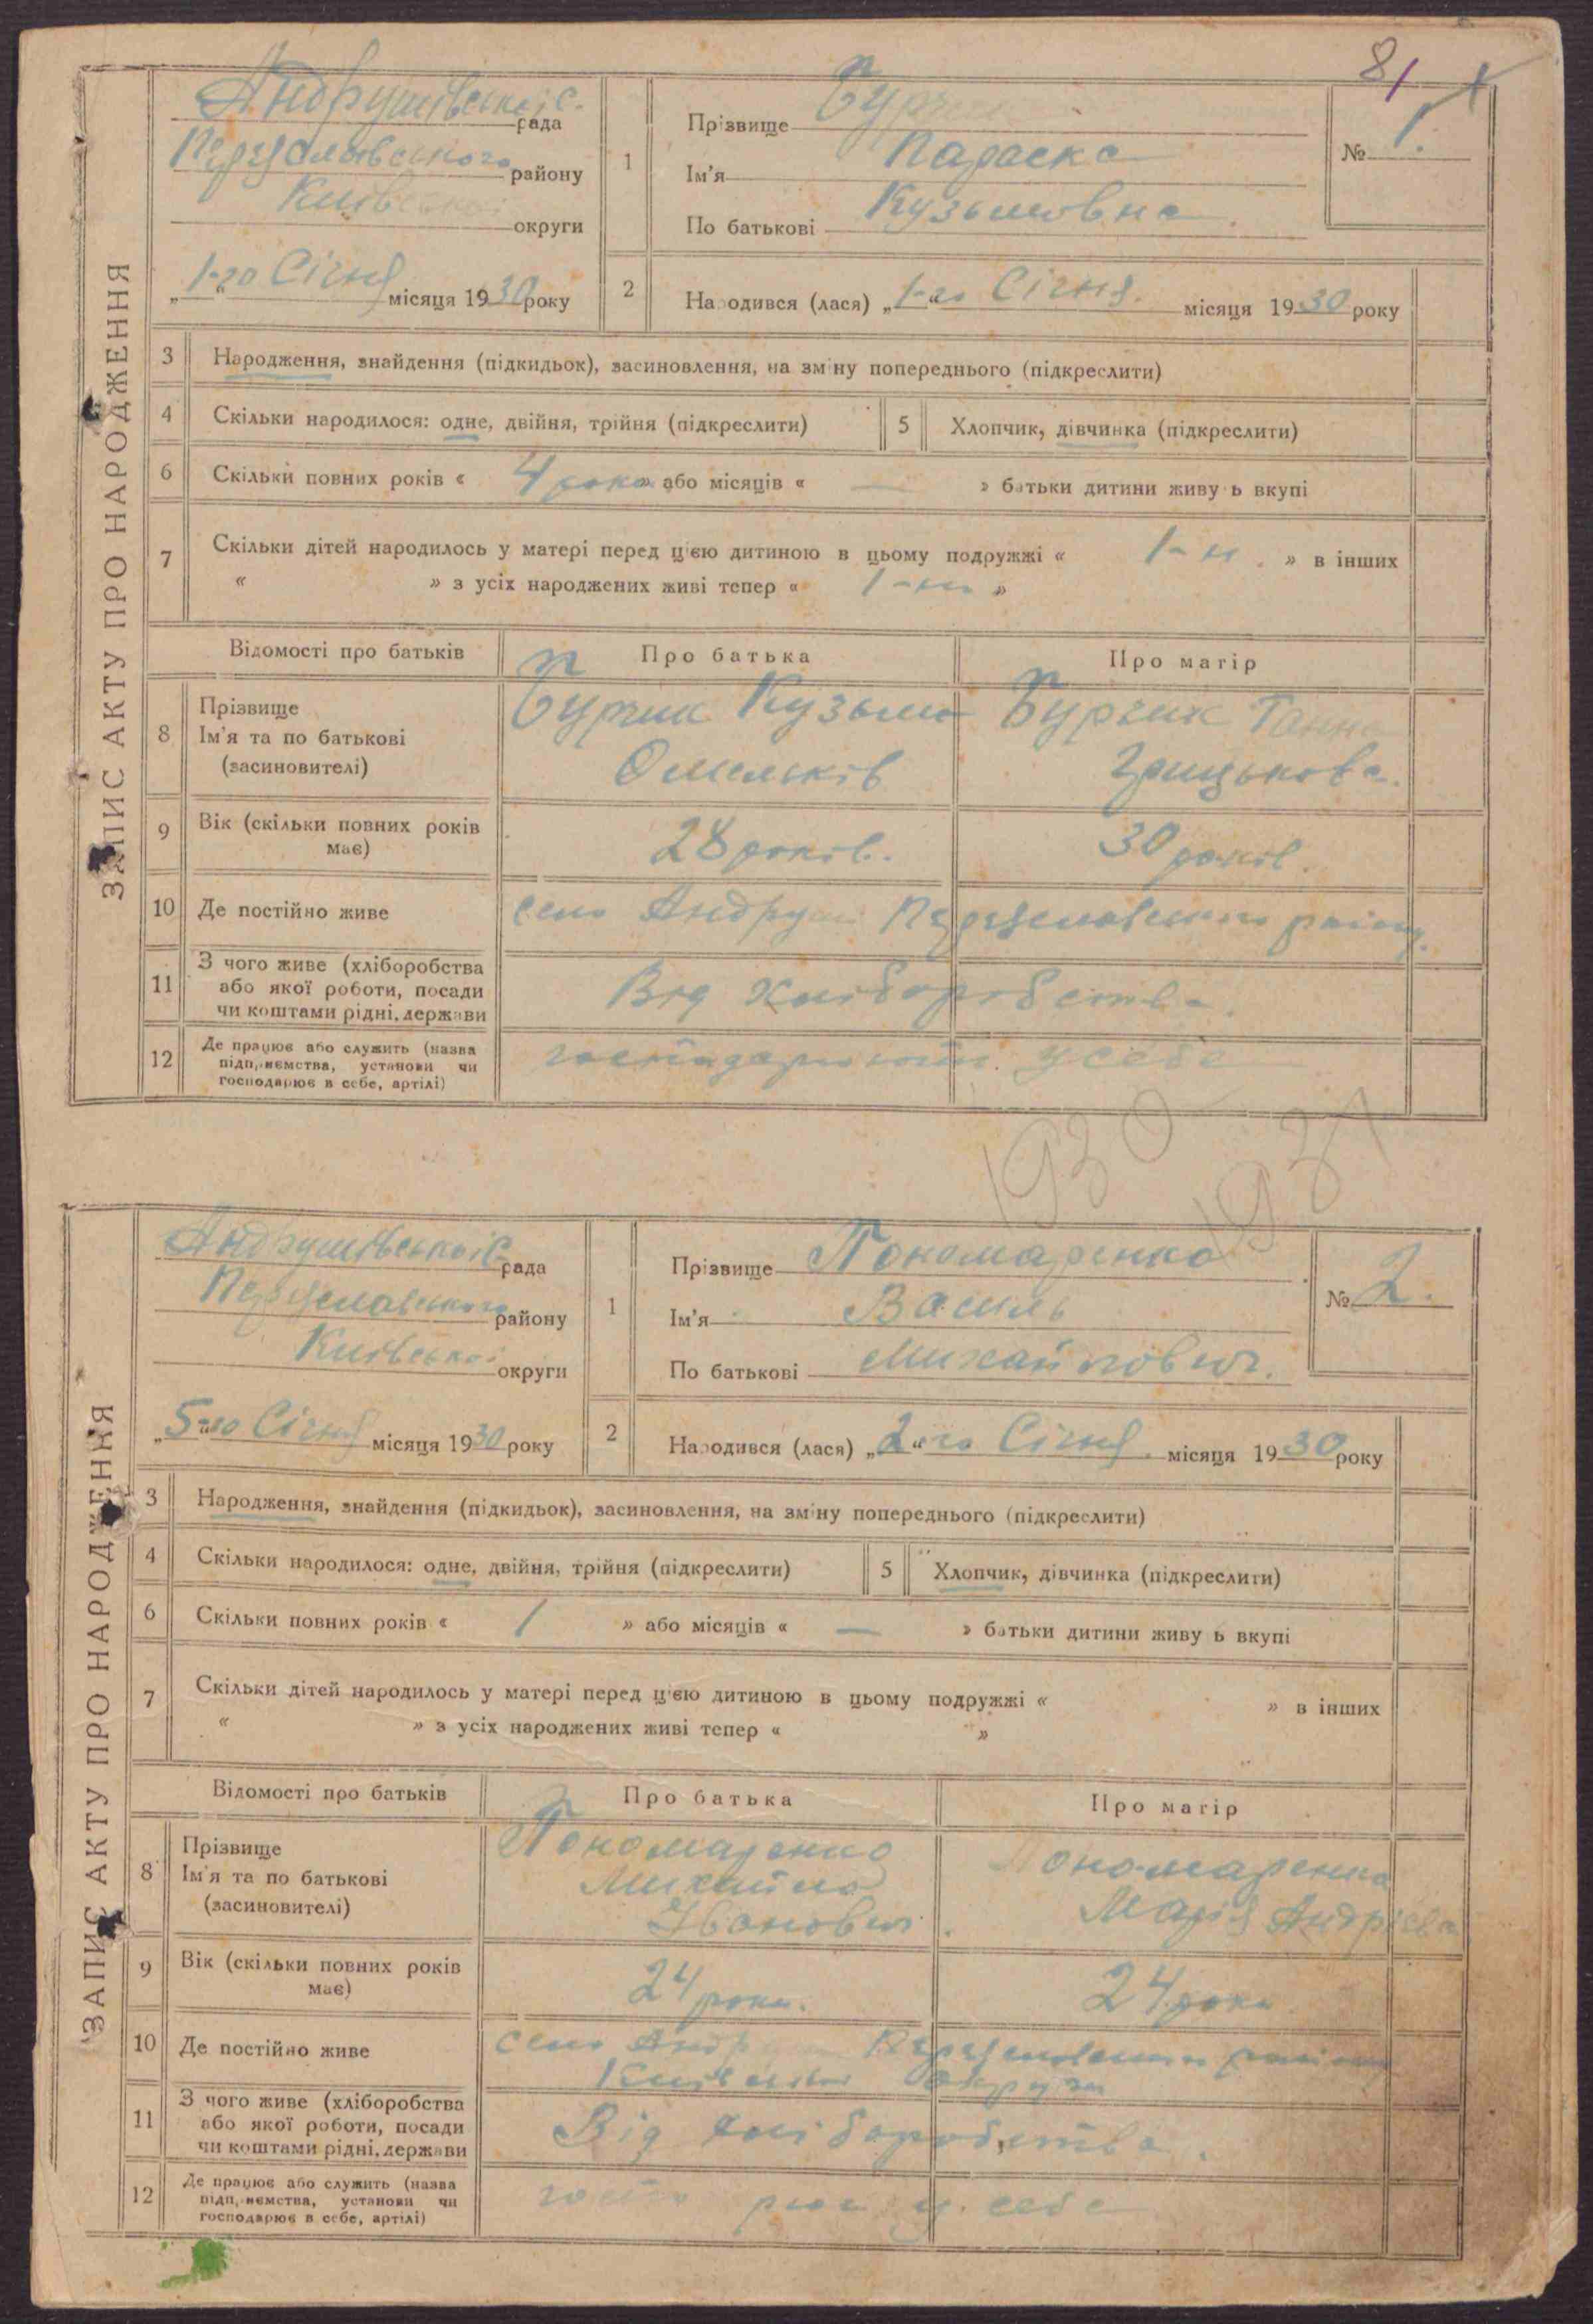 81
ЗАПИС АКТУ ПРО НАРОДЖЕННЯ
Андрушівської с. рада
Переяславського району
Київської округи
„1-го“ Січня місяця 1930 року
1
Прізвище
Ім'я Параска
По батькові Кузьмовна.
№ 1.
2
Народився (лася) „1-го“ Січня. місяця 1930 року
3 Народження, знайдення (підкидьок), засиновлення, на зміну попереднього (підкреслити)
4 Скільки народилося: одне, двійня, трійня (підкреслити)
5 Хлопчик, дівчинка (підкреслити)
6 Скільки повних років « 4 роки » або місяців « — » батьки дитини живуть вкупі
7 Скільки дітей народилось у матері перед цією дитиною в цьому подружжі « 1-н. » в інших
« » з усіх народжених живі тепер « 1-н »
Відомості про батьків
Про батька
Про матір
8 Прізвище
Ім'я та по батькові
(засиновителі)
Бурчик Кузьма
Омельків
Бурчик Ганна
Грицькова.
9 Вік (скільки повних років
має)
28 років.
30 років.
10 Де постійно живе
село Андруші Переяславського району.
11 З чого живе (хліборобства
або якої роботи, посади
чи коштами рідні, держави
Від хліборобства.
12 Де працює або служить (назва
підприємства, установи чи
господарює в себе, артілі)
господарюють у себе
1930
ЗАПИС АКТУ ПРО НАРОДЖЕННЯ
Андрушівської с. рада
Переяславського району
Київської округи
„5-го“ Січня місяця 1930 року
1
Прізвище Пономаренко
Ім'я Василь
По батькові Михайлович.
№ 2.
2
Народився (лася) „2-го“ Січня місяця 1930 року
3 Народження, знайдення (підкидьок), засиновлення, на зміну попереднього (підкреслити)
4 Скільки народилося: одне, двійня, трійня (підкреслити)
5 Хлопчик, дівчинка (підкреслити)
6 Скільки повних років « 1 » або місяців « — » батьки дитини живуть вкупі
7 Скільки дітей народилось у матері перед цією дитиною в цьому подружжі « » в інших
« » з усіх народжених живі тепер « »
Відомості про батьків
Про батька
Про матір
8 Прізвище
Ім'я та по батькові
(засиновителі)
Пономаренко
Михайло
Іванович
Пономаренко
Марія Андрієва
9 Вік (скільки повних років
має)
24 роки.
24 роки
10 Де постійно живе
село Андруші Переяславського району
Київської округи
11 З чого живе (хліборобства
або якої роботи, посади
чи коштами рідні, держави
Від хліборобства.
12 Де працює або служить (назва
підприємства, установи чи
господарює в себе, артілі)
у себе